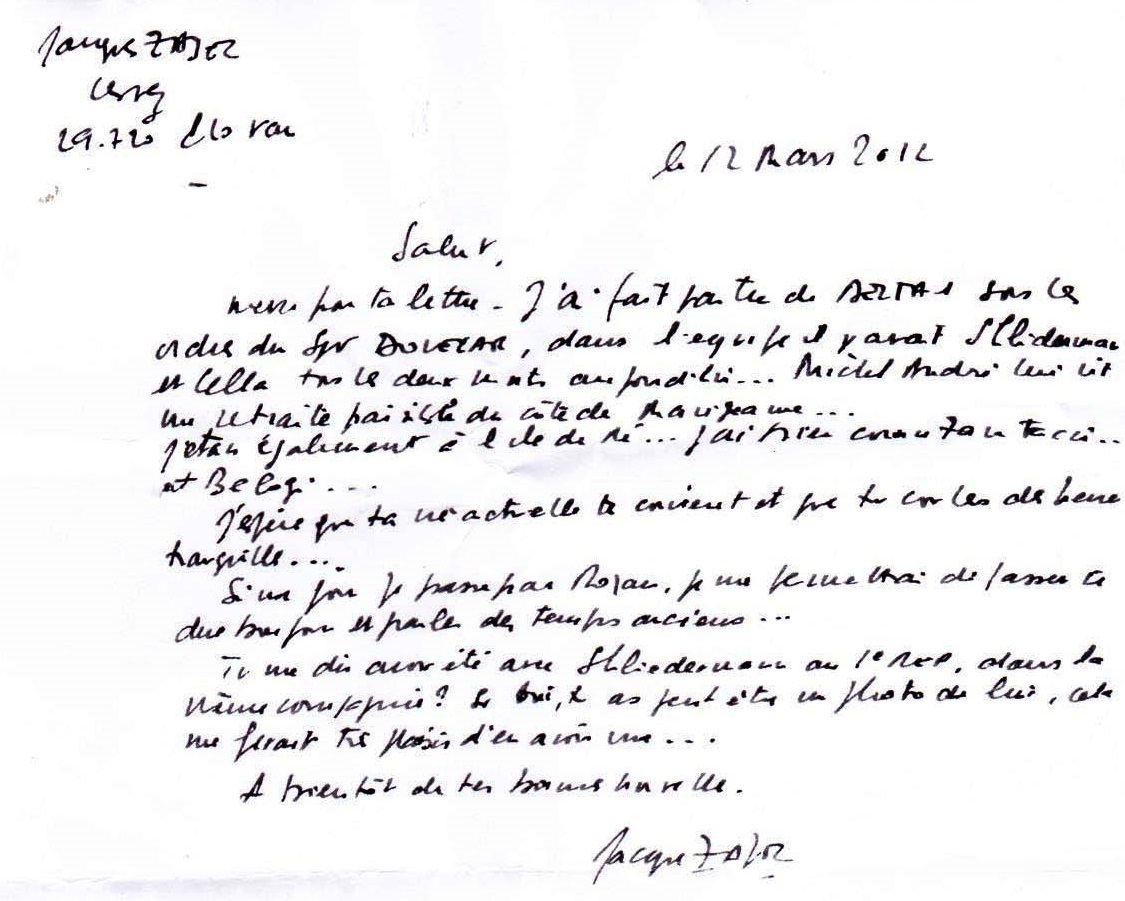 Jacques ZAJEC
29.720
le 12 Mars 2012
Salut,
merci pour ta lettre - J'ai fait partie de DELTA 1 sous les
ordres du Sgt, dans l'équipe il y avait Shliderman
et Cella tous les deux morts aujourd'hui... Michel André lui vit
une retraite paisible du côté de Marignane...
J'étais également à l'ile de Ré... J'ai bien connu
et ...
J'espère que ta vie actuelle te convient et que tu coules des heures
tranquille....
Si un jour je passe par Royan, je me permettrai de passer te
dire bonjour et parler des temps anciens ...
Tu me dis avoir été avec Shliederman au 1e REP, dans la
même compagnie? Si oui, tu as peut être un photo de lui, cela
me ferait très plaisir d'en avoir une ...
A bientôt de tes bonnes nouvelle.
Jacques ZAJEC